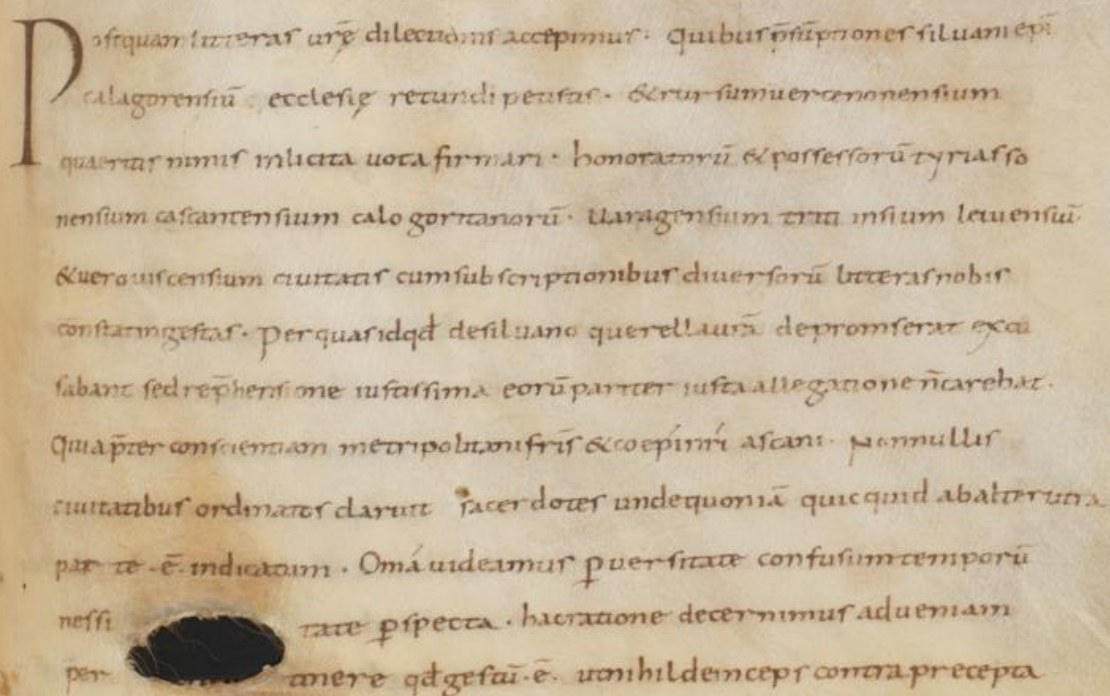 Postquam litteras urę dilectionis accepimus · Quibus p̄sūptiones siluani epī
calagorensiū ecclesię retundi petistis · & rursum uercenonensium
quaeritis nimis inlicita uota firmari · honoratorū & possessorū tyriasso
nensium cascantensium calogoritanorū · Uaragensium triti insium leuuensiū
& uerouiscensium ciuitatis cum subscriptionibus diuersorū litteras nobis
constat ingestas · Per quas id qd̄ desiluano querella urā depromserat excu
sabant sed rep̄hensione iustissima eorū pariter iusta allegatione n̄ carebat ·
Quia p̄ter conscientiam metropolitani fr̄is & coepī nr̄i ascani · Nonnullis
ciuitatibus ordinatos claruit sacerdotes unde quoniā quicquid ab alterutra
parte · ē · indicatum · Omā uideamus ꝑuersitate confusum temporū
nessi tate ꝑspecta · hac ratione decernimus ad ueniam
per tinere qd̄ gestū · ē · ut nihil deinceps contra precepta